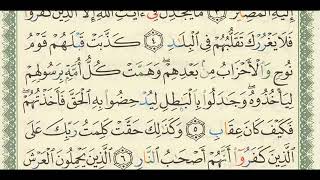 إِلَيْهِ الْمَصِيرُ ٣ مَا يُجَٰدِلُ فِىٓ ءَايَٰتِ اللَّهِ إِلَّا الَّذِينَ كَفَرُوا
فَلَا يَغْرُرْكَ تَقَلُّبُهُمْ فِى الْبِلَٰدِ ٤ كَذَّبَتْ قَبْلَهُمْ قَوْمُ
نُوحٍ وَالْأَحْزَابُ مِنۢ بَعْدِهِمْ وَهَمَّتْ كُلُّ أُمَّةٍۭ بِرَسُولِهِمْ
لِيَأْخُذُوهُ وَجَٰدَلُوا بِالْبَٰطِلِ لِيُدْحِضُوا بِهِ الْحَقَّ فَأَخَذْتُهُمْ
فَكَيْفَ كَانَ عِقَابِ ٥ وَكَذَٰلِكَ حَقَّتْ كَلِمَتُ رَبِّكَ عَلَى
الَّذِينَ كَفَرُوٓا أَنَّهُمْ أَصْحَٰبُ النَّارِ ٦ الَّذِينَ يَحْمِلُونَ الْعَرْشَ